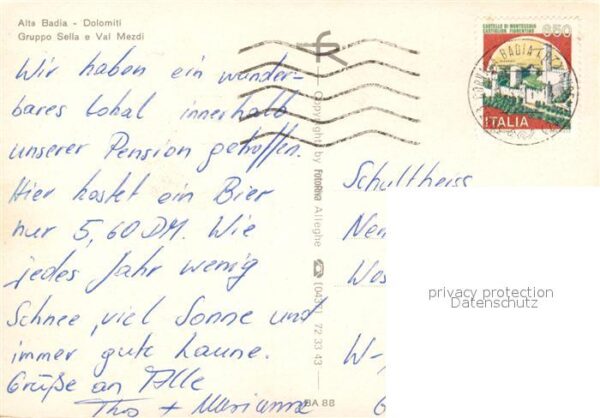 Alta Badia - Dolomiti
Gruppo Sella e Val Mezdi
Wir haben ein wunder-
bares Lokal innerhalb
unserer Pension getroffen.
Hier kostet ein Bier
nur 5,60 DM. Wie
jedes Jahr wenig
Schnee, viel Sonne und
immer gute Laune.
Grüße an Alle
Tho + Marianne
Copyright by FOTORIVA Alleghe
72 33 43
BA 88
CASTELLO DI MONTECCHIO
CASTIGLION FIORENTINO
650
ITALIA
BADIA
Schultheiss
privacy protection
Datenschutz
W-
6